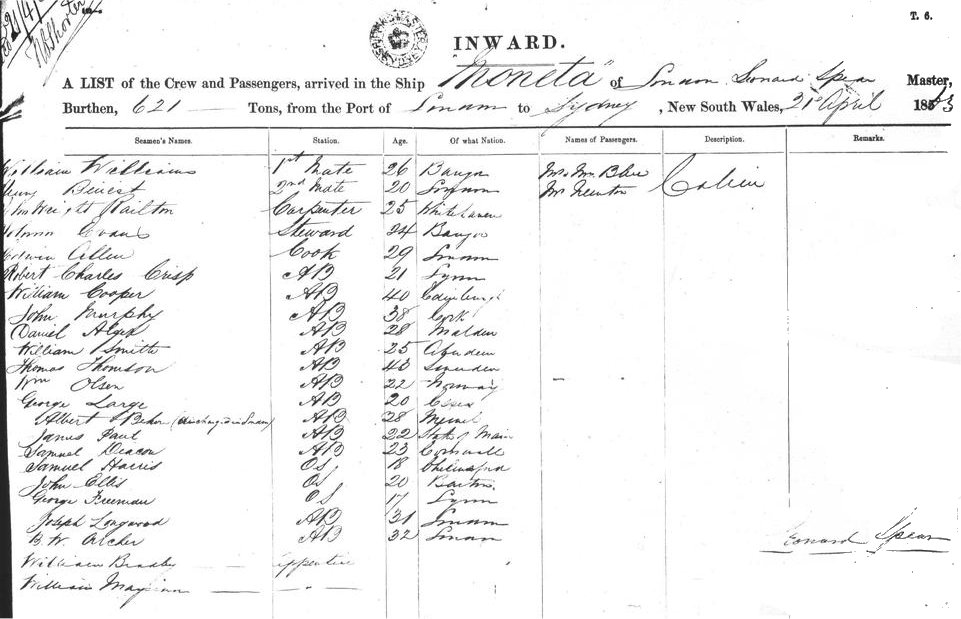 T. 6.
INWARD.
A LIST of the Crew and Passengers, arrived in the Ship "Moneta" of London Leonard Spear Master,
Burthen, 621 Tons, from the Port of London to Sydney, New South Wales, 21st April 1883
Seamen's Names. Station. Age. Of what Nation. Names of Passengers. Description. Remarks.
William Williams 1st Mate 26 Bangor Mr & Mrs Blue
2nd Mate 20 London Mr Newton Cabin
Wright Railton Carpenter 25 Whitehaven
Evans Steward 24 Bangor
Edwin Allen Cook 29 London
Robert Charles Crisp AB 21 Lynn
William Cooper AB 40 Edinburgh
John Murphy AB 38 Cork
Daniel Alger AB 28 Maldon
William Smith AB 25 Aberdeen
Thomas Thomson AB 43 Sweden
Wm Olsen AB 22 Norway
George Large AB 20 Essex
Albert (discharged in London) AB 28
James Paul AB 22 State of Main
Samuel Deacon AB 23 Cornwall
Samuel Harris OS 18 Chelmsford
John Ellis OS 20 Barton
George Freeman OS 17 Lynn
Joseph Longwood AB 31 London
B. W. Archer AB 32 London
Leonard Spear
William Bradby apprentice
William